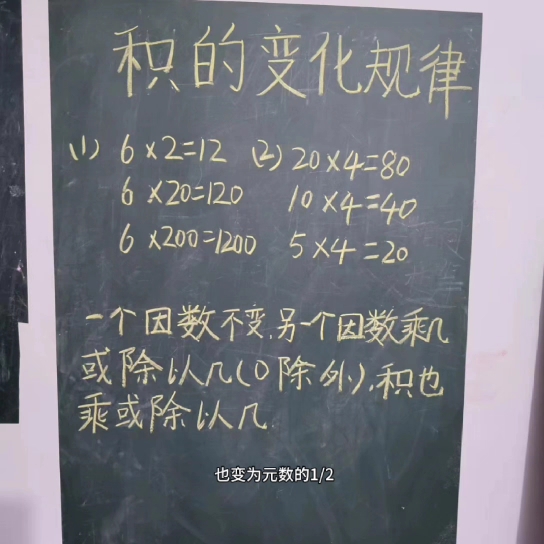 积的变化规律
(1) 6×2=12 (2) 20×4=80
6×20=120 10×4=40
6×200=1200 5×4=20
一个因数不变,另一个因数乘几
或除以几(0除外),积也
乘或除以几
也变为元数的1/2